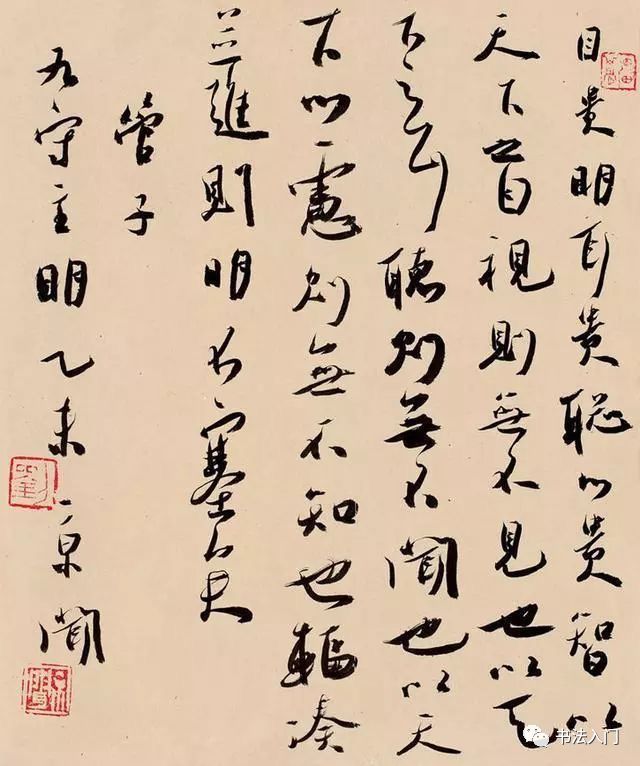 目貴明耳貴聰心貴智以
天下之目視則無不見也以天
下之耳聽則無不聞也以天
下心慮則無不知也輻湊
並進則明不塞矣
管子
九守主明乙未京聞
劉
书法入门